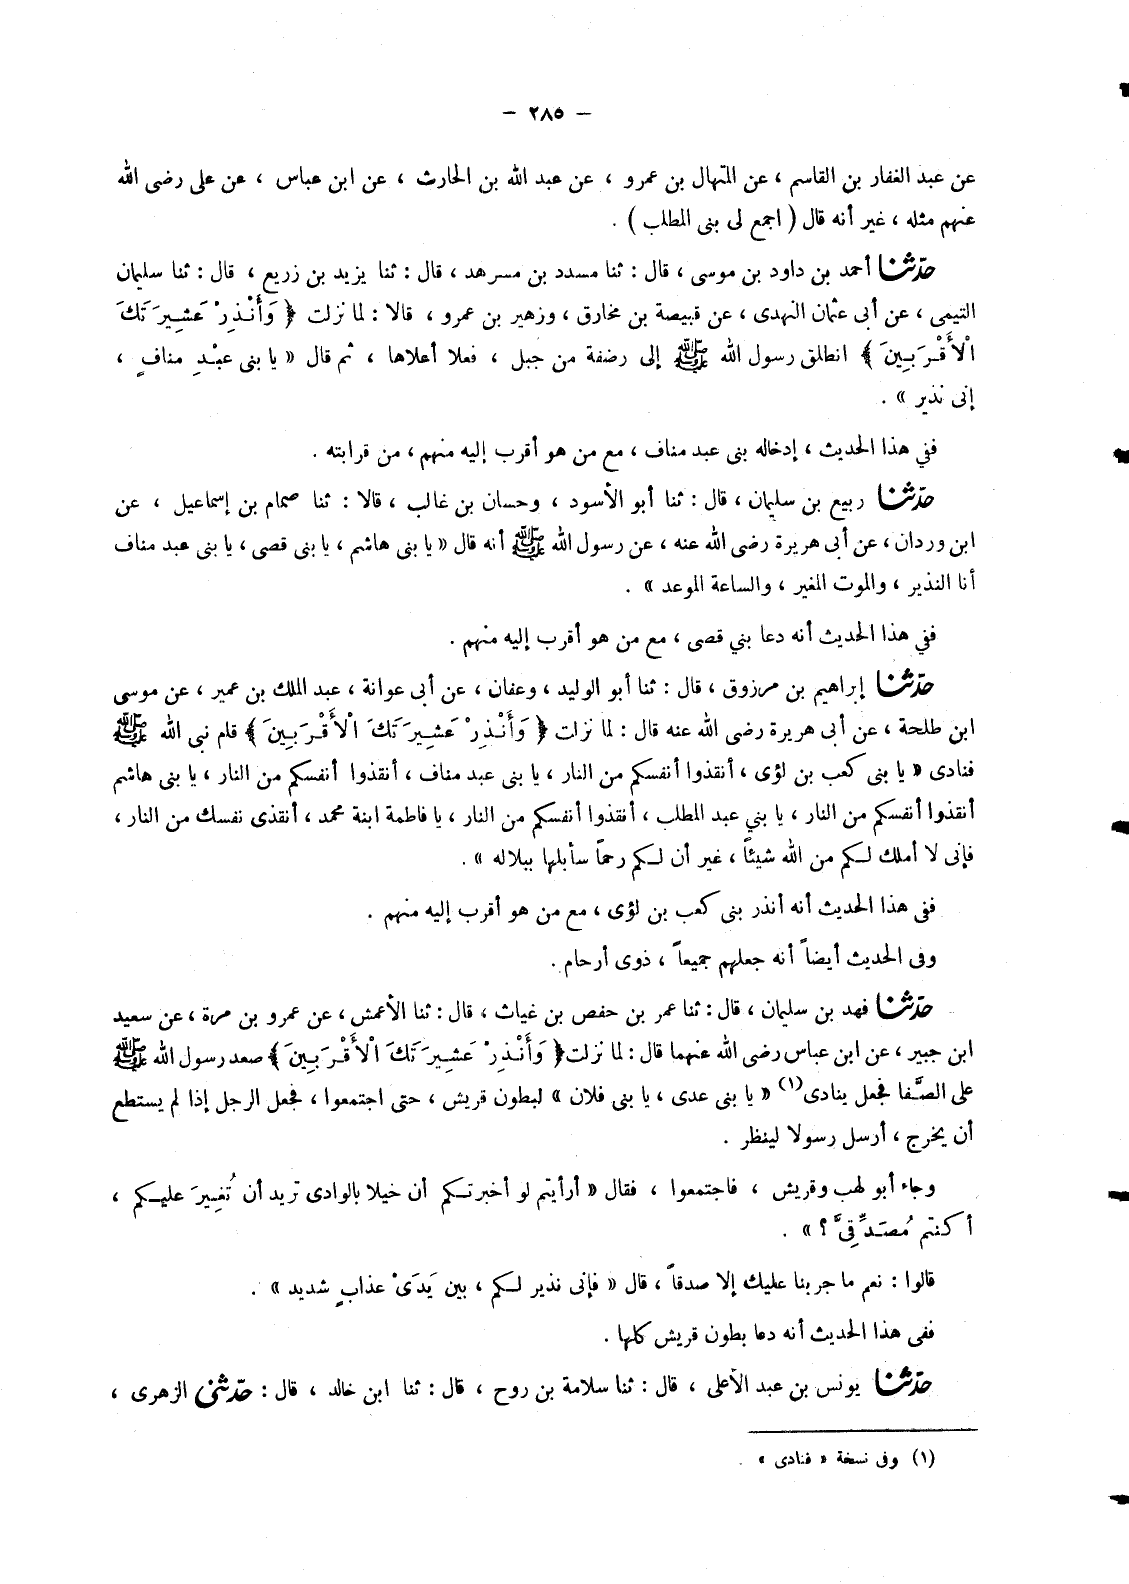 — ٢٨٥ —
عن عبد الغفار بن القاسم ، عن المنهال بن عمرو ، عن عبد الله بن الحارث ، عن ابن عباس ، عن على رضى الله
عنهم مثله ، غير أنه قال ( اجمع لى بنى المطلب ) .
حدّثنا أحمد بن داود بن موسى ، قال : ثنا مسدد بن مسرهد ، قال : ثنا يزيد بن زريع ، قال : ثنا سليمان
التيمى ، عن أبى عثمان النهدى ، عن قبيصة بن مخارق ، وزهير بن عمرو ، قالا : لما نزلت ﴿ وَأَنْذِرْ عَشِيرَتَكَ
الْأَقْرَبِينَ ﴾ انطلق رسول الله ﷺ إلى رضفة من جبل ، فعلا أعلاها ، ثم قال « يا بنى عبْدِ منافٍ ،
إنى نذير » .
فني هذا الحديث ، إدخاله بنى عبد مناف ، مع من هو أقرب إليه منهم ، من قرابته .
حدّثنا ربيع بن سليمان ، قال : ثنا أبو الأسود ، وحسان بن غالب ، قالا : ثنا ضمام بن إسماعيل ، عن
ابن وردان ، عن أبى هريرة رضى الله عنه ، عن رسول الله ﷺ أنه قال « يا بنى هاشم ، يا بنى قصى ، يا بنى عبد مناف
أنا النذير ، والموت المغير ، والساعة الموعد » .
ففي هذا الحديث أنه دعا بني قصى ، مع من هو أقرب إليه منهم .
حدّثنا إبراهيم بن مرزوق ، قال : ثنا أبو الوليد ، وعفان ، عن أبى عوانة ، عبد الملك بن عمير ، عن موسى
ابن طلحة ، عن أبى هريرة رضى الله عنه قال : لما نزلت ﴿ وَأَنْذِرْ عَشِيرَتَكَ الْأَقْرَبِينَ ﴾ قام نبى الله ﷺ
فنادى « يا بنى كعب بن لؤى ، أنقذوا أنفسكم من النار ، يا بنى عبد مناف ، أنقذوا أنفسكم من النار ، يا بنى هاشم
أنقذوا أنفسكم من النار ، يا بني عبد المطلب ، أنقذوا أنفسكم من النار ، يا فاطمة ابنة محمد ، أنقذى نفسك من النار ،
فإنى لا أملك لكم من الله شيئاً ، غير أن لكم رحماً سأبلها ببلاله » .
ففى هذا الحديث أنه أنذر بنى كعب بن لؤى ، مع من هو أقرب إليه منهم .
وفى الحديث أيضاً أنه جعلهم جميعاً ، ذوى أرحام .
حدّثنا فهد بن سليمان ، قال : ثنا عمر بن حفص بن غياث ، قال : ثنا الأعمش ، عن عمرو بن مرة ، عن سعيد
ابن جبير ، عن ابن عباس رضى الله عنهما قال : لما نزلت ﴿ وَأَنْذِرْ عَشِيرَتَكَ الْأَقْرَبِينَ ﴾ صعد رسول الله ﷺ
على الصَّفا فجعل ينادى(١) « يا بنى عدى ، يا بنى فلان » لبطون قريش ، حتى اجتمعوا ، فجعل الرجل إذا لم يستطع
أن يخرج ، أرسل رسولا لينظر .
وجاء أبو لهب وقريش ، فاجتمعوا ، فقال « أرأيتم لو أخبرتكم أن خيلا بالوادى تريد أن تُغِيرَ عليكم ،
أكنتم مُصَدِّقِىَّ ؟ » .
قالوا : نعم ما جربنا عليك إلا صدقاً ، قال « فإنى نذير لكم ، بين يَدَىْ عذابٍ شديد » .
ففى هذا الحديث أنه دعا بطون قريش كلها .
حدّثنا يونس بن عبد الأعلى ، قال : ثنا سلامة بن روح ، قال : ثنا ابن خالد ، قال : حدّثنى الزهرى ،
(١) وفى نسخة « فنادى » .